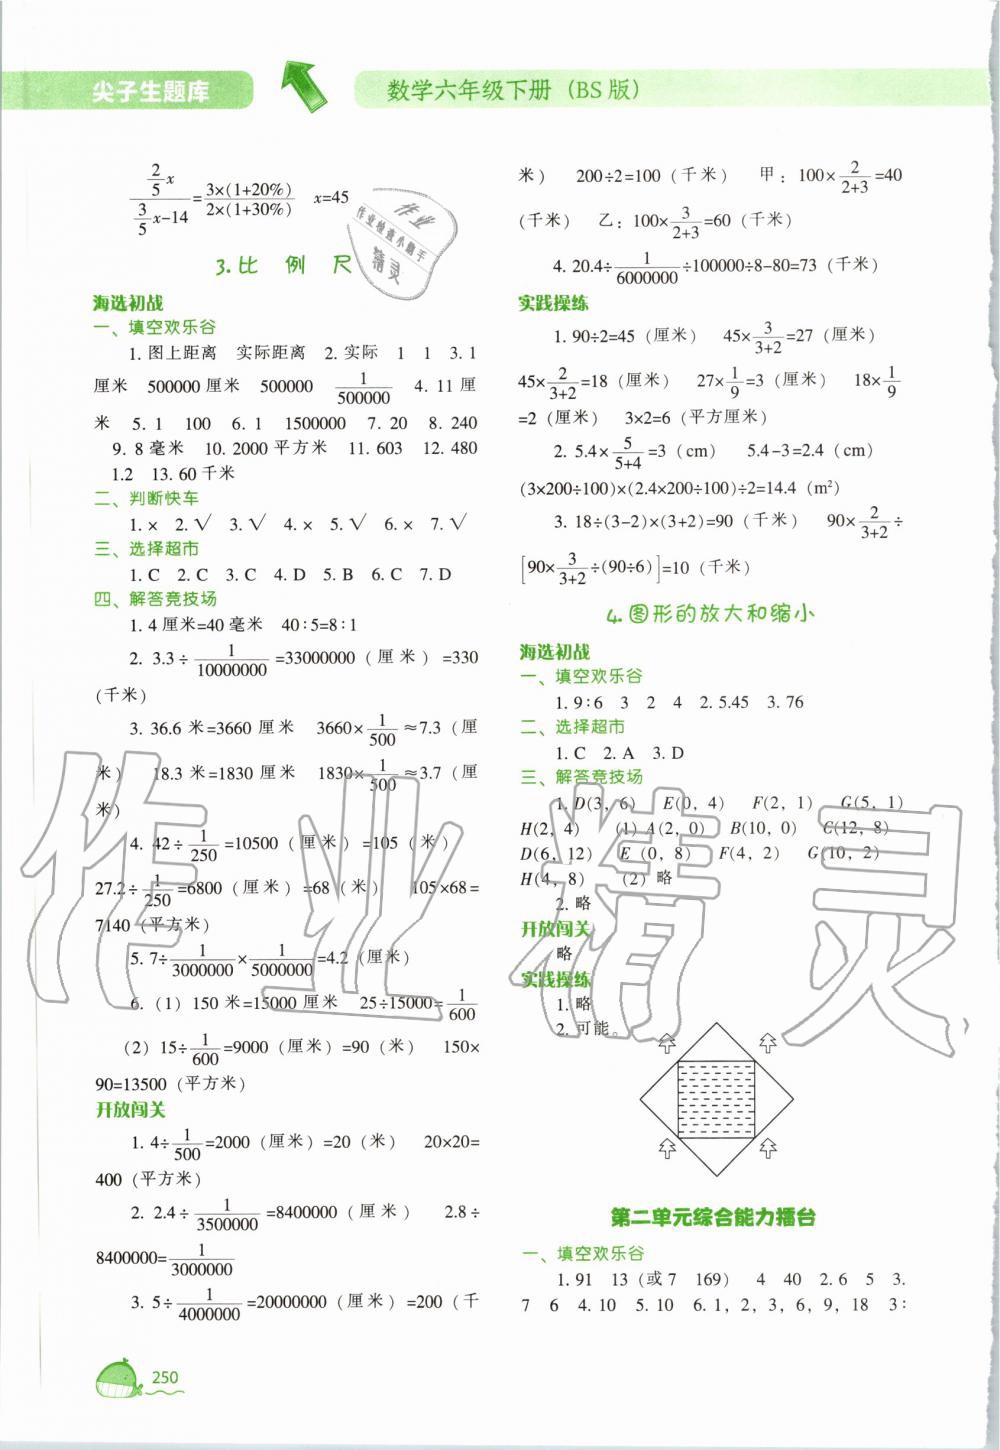 尖子生题库
数学六年级下册（BS版）
2/5x / (3/5x-14) = 3×(1+20%) / 2×(1+30%)　x=45
3.比 例 尺
海选初战
一、填空欢乐谷
1.图上距离　实际距离　2.实际　1　1　3.1
厘米　500000厘米　500000　1/500000　4.11厘
米　5.1　100　6.1　1500000　7.20　8.240
9.8毫米　10.2000平方米　11.603　12.480
1.2　13.60千米
二、判断快车
1.×　2.√　3.√　4.×　5.√　6.×　7.√
三、选择超市
1.C　2.C　3.C　4.D　5.B　6.C　7.D
四、解答竞技场
1.4厘米=40毫米　40∶5=8∶1
2. 3.3÷1/10000000=33000000（厘米）=330
（千米）
3. 36.6米=3660厘米　3660×1/500≈7.3（厘
米）　18.3米=1830厘米　1830×1/500≈3.7（厘
米）
4. 42÷1/250=10500（厘米）=105（米）
27.2÷1/250=6800（厘米）=68（米）　105×68=
7140（平方米）
5. 7÷1/3000000×1/5000000=4.2（厘米）
6.（1）150米=15000厘米　25÷15000=1/600
（2）15÷1/600=9000（厘米）=90（米）　150×
90=13500（平方米）
开放闯关
1. 4÷1/500=2000（厘米）=20（米）　20×20=
400（平方米）
2. 2.4÷1/3500000=8400000（厘米）　2.8÷
8400000=1/3000000
3. 5÷1/4000000=20000000（厘米）=200（千
米）　200÷2=100（千米）　甲：100×2/(2+3)=40
（千米）　乙：100×3/(2+3)=60（千米）
4. 20.4÷1/6000000÷100000÷8-80=73（千米）
实践操练
1. 90÷2=45（厘米）　45×3/(3+2)=27（厘米）
45×2/(3+2)=18（厘米）　27×1/9=3（厘米）　18×1/9
=2（厘米）　3×2=6（平方厘米）
2. 5.4×5/(5+4)=3（cm）　5.4-3=2.4（cm）
（3×200÷100）×（2.4×200÷100）÷2=14.4（m²）
3. 18÷(3-2)×(3+2)=90（千米）　90×2/(3+2)÷
[90×3/(3+2)÷(90÷6)]=10（千米）
4.图形的放大和缩小
海选初战
一、填空欢乐谷
1. 9∶6　3　2　4　2. 5.45　3. 76
二、选择超市
1.C　2.A　3.D
三、解答竞技场
1. D(3，6)　E(0，4)　F(2，1)　G(5，1)
H(2，4)　(1) A(2，0)　B(10，0)　C(12，8)
D(6，12)　E（0，8）　F(4，2)　G(10，2)
H(4，8)　(2) 略
2. 略
开放闯关
略
实践操练
1. 略
2. 可能。
第二单元综合能力擂台
一、填空欢乐谷
1. 91　13（或7　169）　4　40　2. 6　5　3.
7　6　4. 10　5. 10　6. 1，2，3，6，9，18　3∶
250
作业
作业检查小助手
精灵
作业精灵